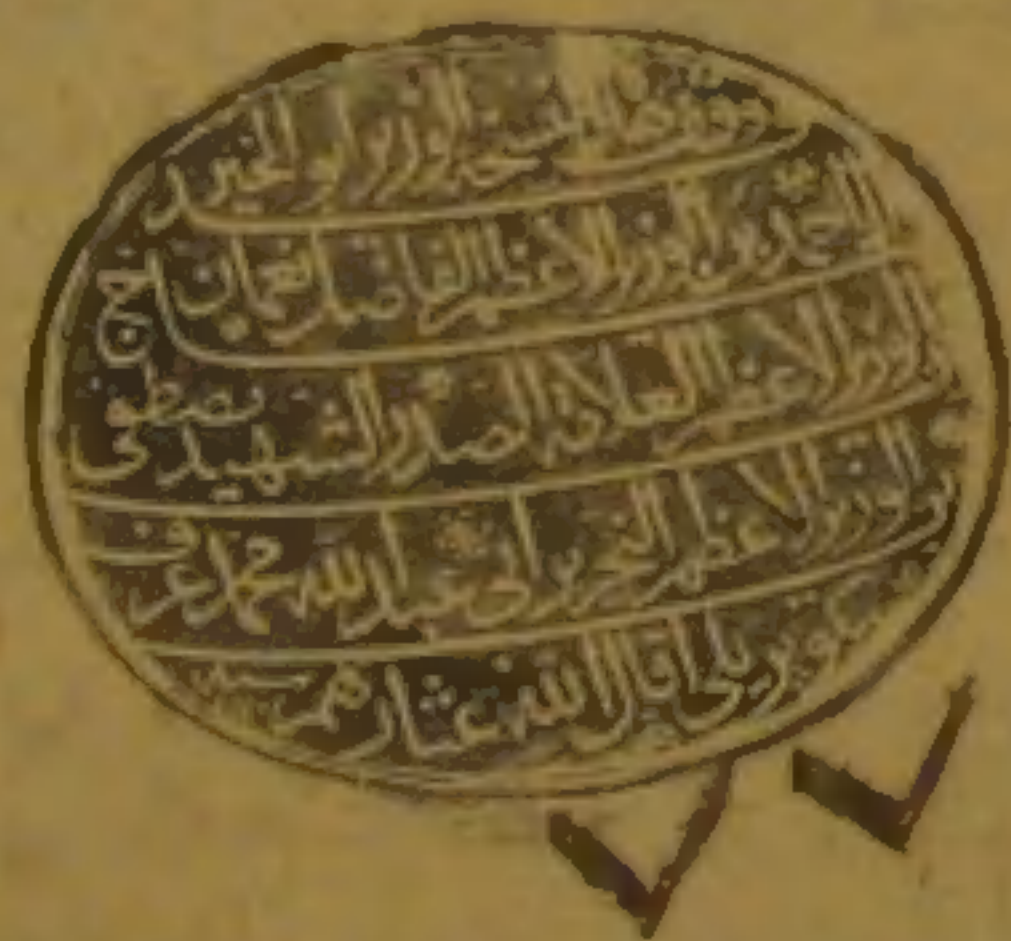 وقف هذه النسخة الوزير ابو الخير
احمد بن الوزير الاعظم الفاضل نعمان بن
الوزير الاعظم العلامة الصدر الشهيد مصطفى
بن الوزير الاعظم النحرير ابي عبد الله محمد عرف
بكوبريلي اقال الله عثارهم
٧٧